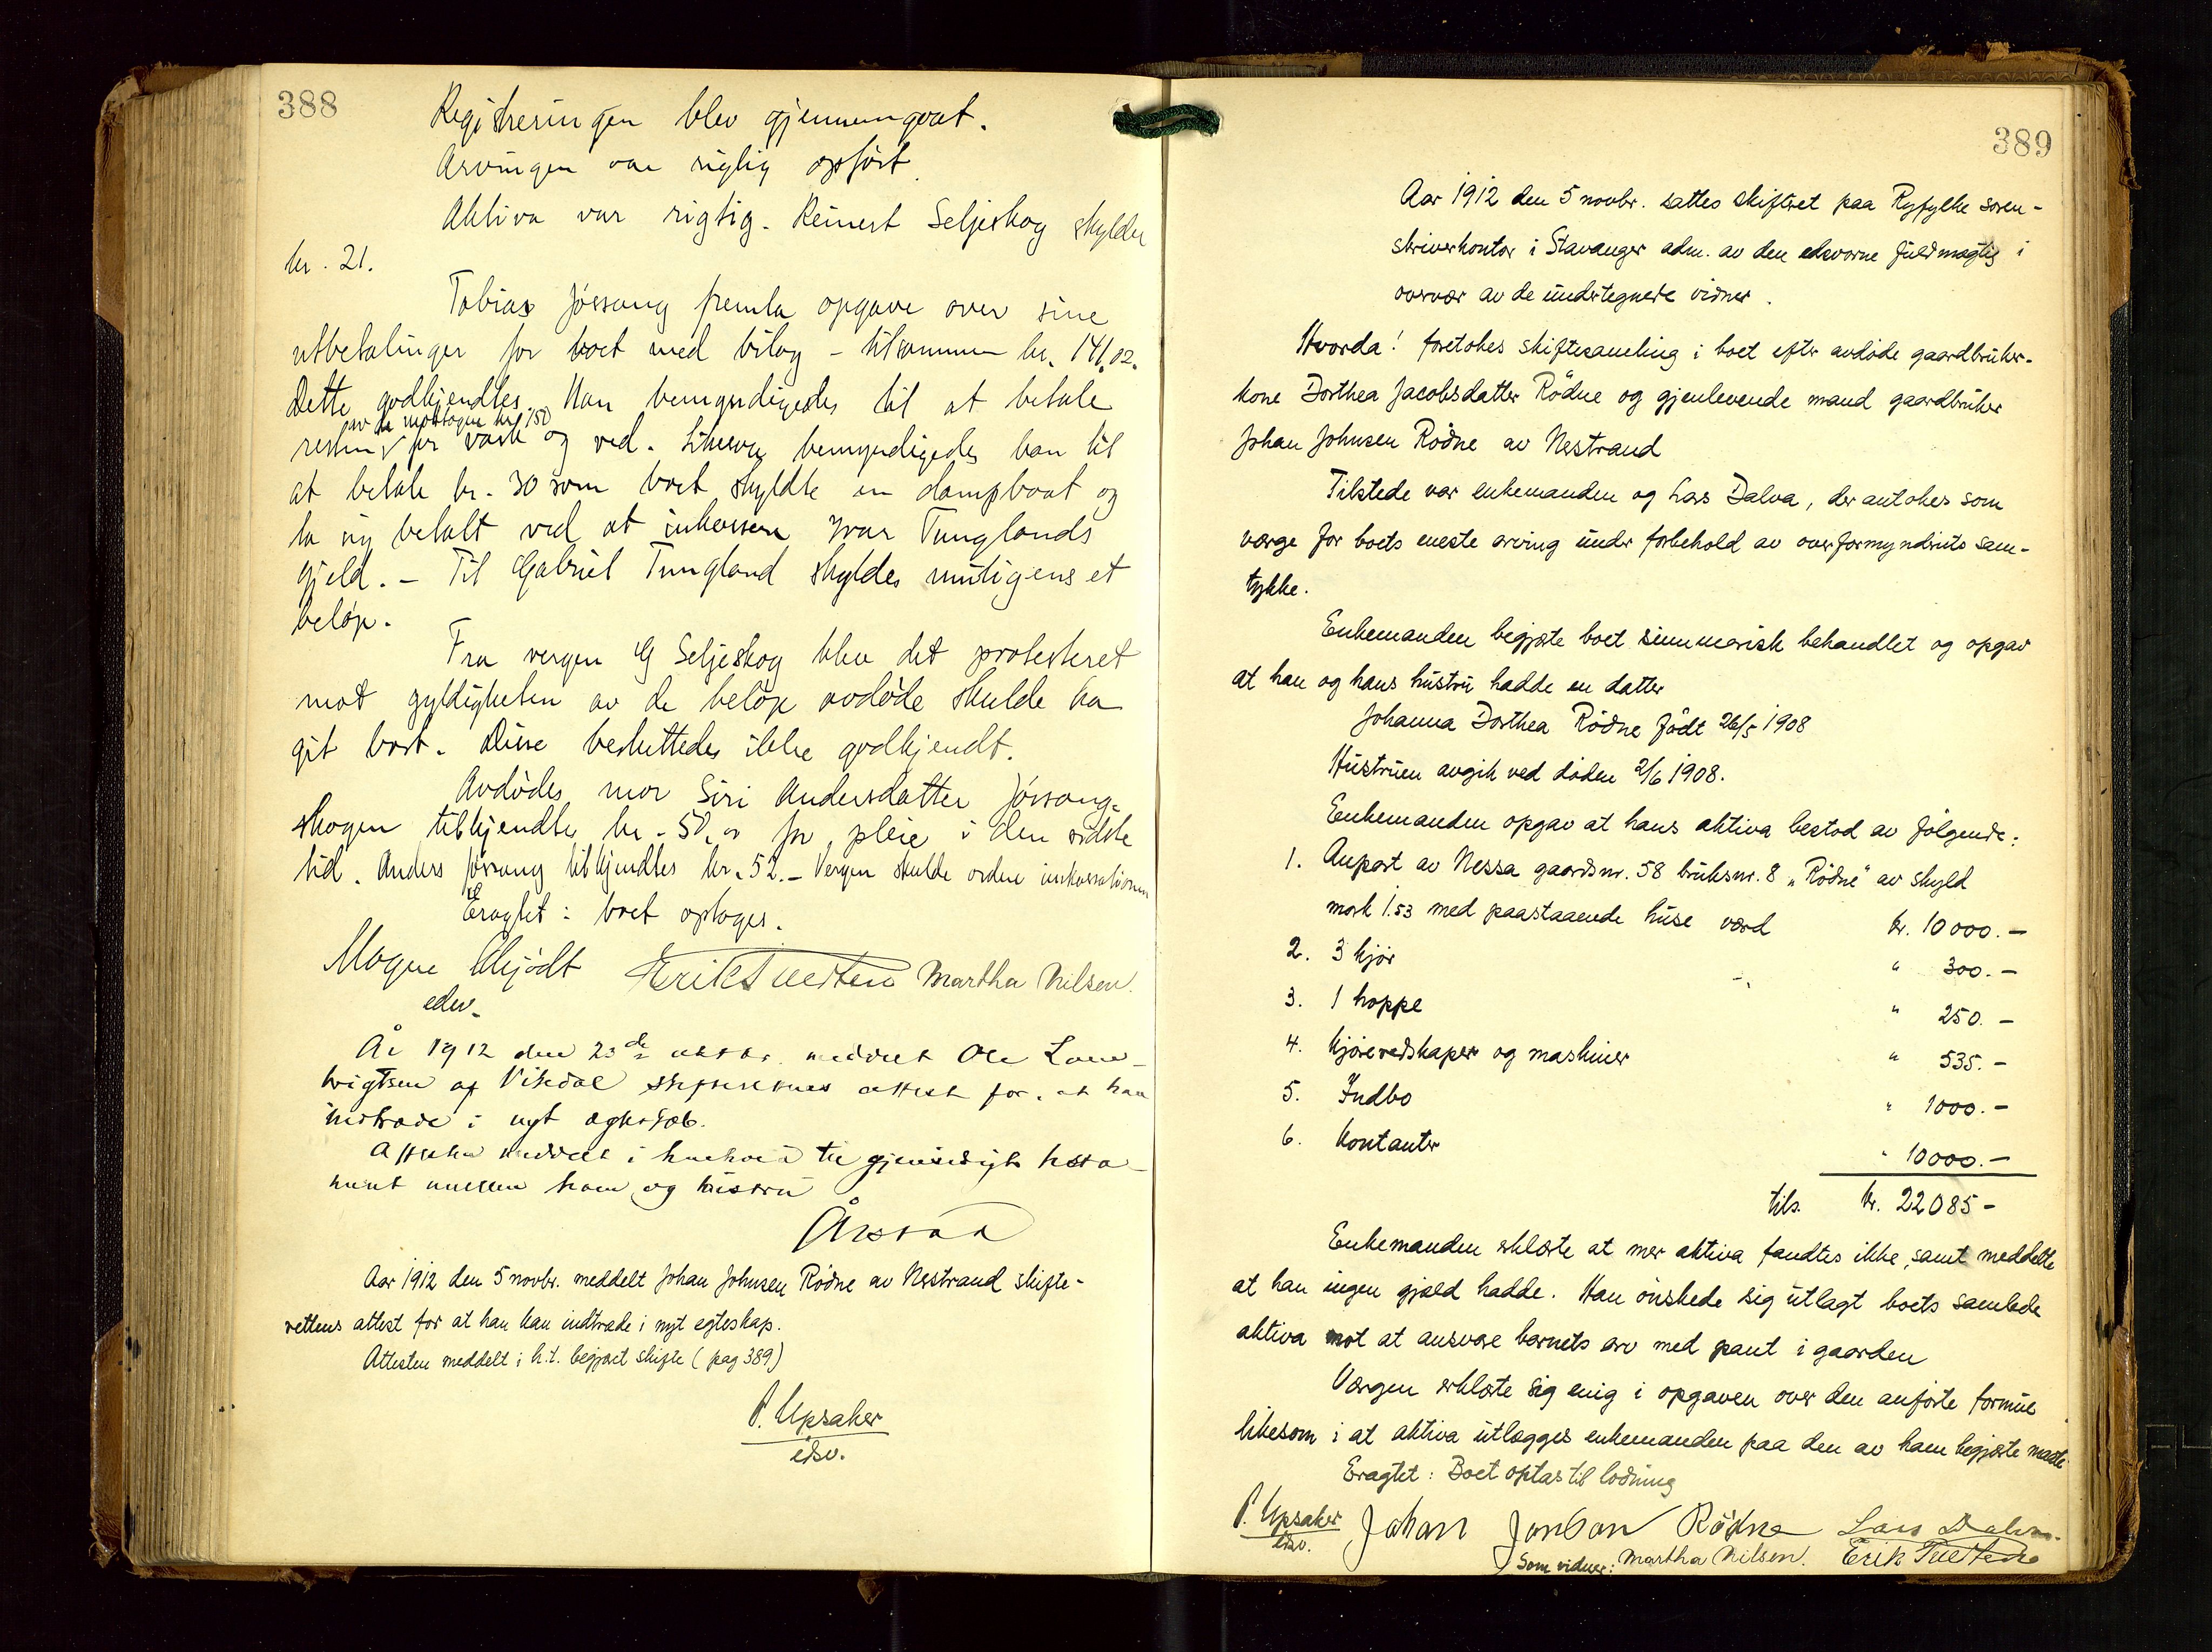 388
Registreringen blev gjennemgaat.
Arvingen var rigtig opført.
Aktiva var rigtig. Reinert Seljeskog skylder
kr. 21.
Tobias Jøssang fremla opgave over sine
utbetalinger for boet med bilag – tilsammen kr. 141,02.
Dette godkjendtes. Han bemyndigedes til at betale
av de mottagne kr. 150
resten for vask og ved. Likesaa bemyndigedes han til
at betale kr. 30 som boet skyldte en dampbaat og
ta sig betalt ved at inkassere Ivar Tunglands
gjeld. – Til Gabriel Tungland skyldes muligens et
beløp.
Fra vergen G Seljeskog blev det protesteret
mot gyldigheten av de beløp avdøde skulde ha
git bort. Disse besluttedes ikke godkjendt.
Avdødes mor Siri Andersdatter Jøssang-
skogen tilkjendtes kr. 50,00 for pleie i den sidste
tid. Anders Jøssang tilkjendtes kr. 52. – Vergen skulde ordne inkassationen
Eragtet: boet optages.
Magne Skjødt Erik Tuesten Martha Nilsen.
edsv.
År 1912 den 23de oktbr. meddelt Ole Lau-
ritsen af Vikedal skifterettens attest for, at han
indtræde i nyt ægteskab.
Attesten meddelt i henhold til gjensidigt testa-
ment mellem ham og hustru
Årstad
Aar 1912 den 5 novbr. meddelt Johan Johnsen Rødne av Nestrand skifte-
rettens attest for at han kan indtræde i nyt egteskap.
Attesten meddelt i h.t. begjært skifte (pag 389)
P. Upsaker
edsv.
389
Aar 1912 den 5 novbr. sattes skifteret paa Ryfylke soren-
skriverkontor i Stavanger adm. av den edsvorne fuldmægtig i
overvær av de undertegnede vidner.
Hvorda! foretokes skiftesamling i boet efter avdøde gaardbruker-
kone Dorthea Jacobsdatter Rødne og gjenlevende mand gaardbruker
Johan Johnsen Rødne av Nestrand
Tilstede var enkemanden og Lars Dalva, der antokes som
værge for boets eneste arving under forbehold av overformynderiets sam-
tykke.
Enkemanden begjærte boet summarisk behandlet og opgav
at han og hans hustru hadde en datter
Johanna Dorthea Rødne født 26/5 1908
Hustruen avgik ved døden 2/6 1908.
Enkemanden opgav at hans aktiva bestod av følgende:
1. Anpart av Nessa gaardsnr. 58 bruksnr. 8 „Rødne" av skyld
mark 1.53 med paastaaende huse værd kr. 10000.–
2. 3 kjør " 300.–
3. 1 hoppe " 250.–
4. Kjøreredskaper og maskiner " 535.–
5. Indbo " 1000.–
6. Kontanter " 10000.–
tils. kr. 22085–
Enkemanden erklærte at mer aktiva fandtes ikke, samt meddelte
at han ingen gjæld hadde. Han ønskede sig utlagt boets samlede
aktiva mot at ansvare barnets arv med pant i gaarden
Værgen erklærte sig enig i opgaven over den anførte formue
likesom i at aktiva utlægges enkemanden paa den av ham begjærte maate
Eragtet: Boet optas til lodning
P. Upsaker Johan Jonson Rødne Lars Dalva.
edsv.
Som vidner: Martha Nilsen. Erik Tuesten